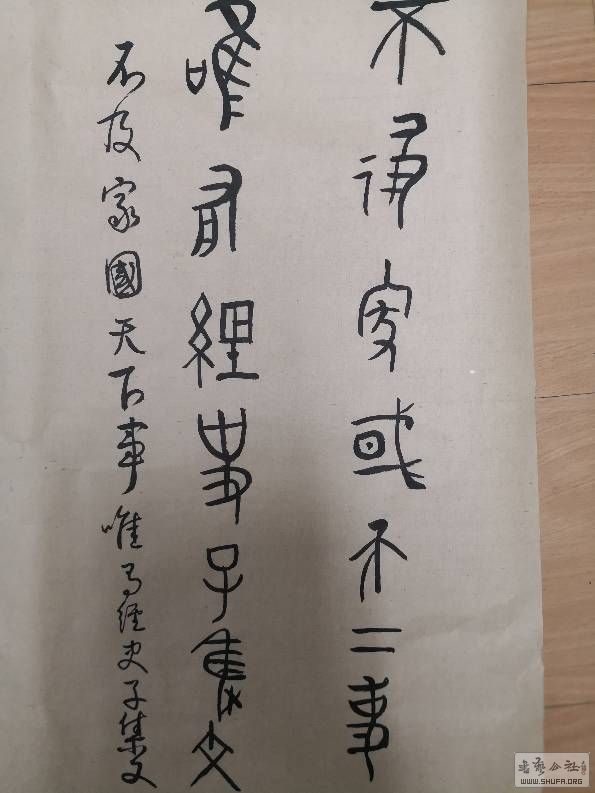 不家國天下事
唯有經史子集文
不及家國天下事唯有經史子集文
书艺公社
WWW.SHUFA.ORG